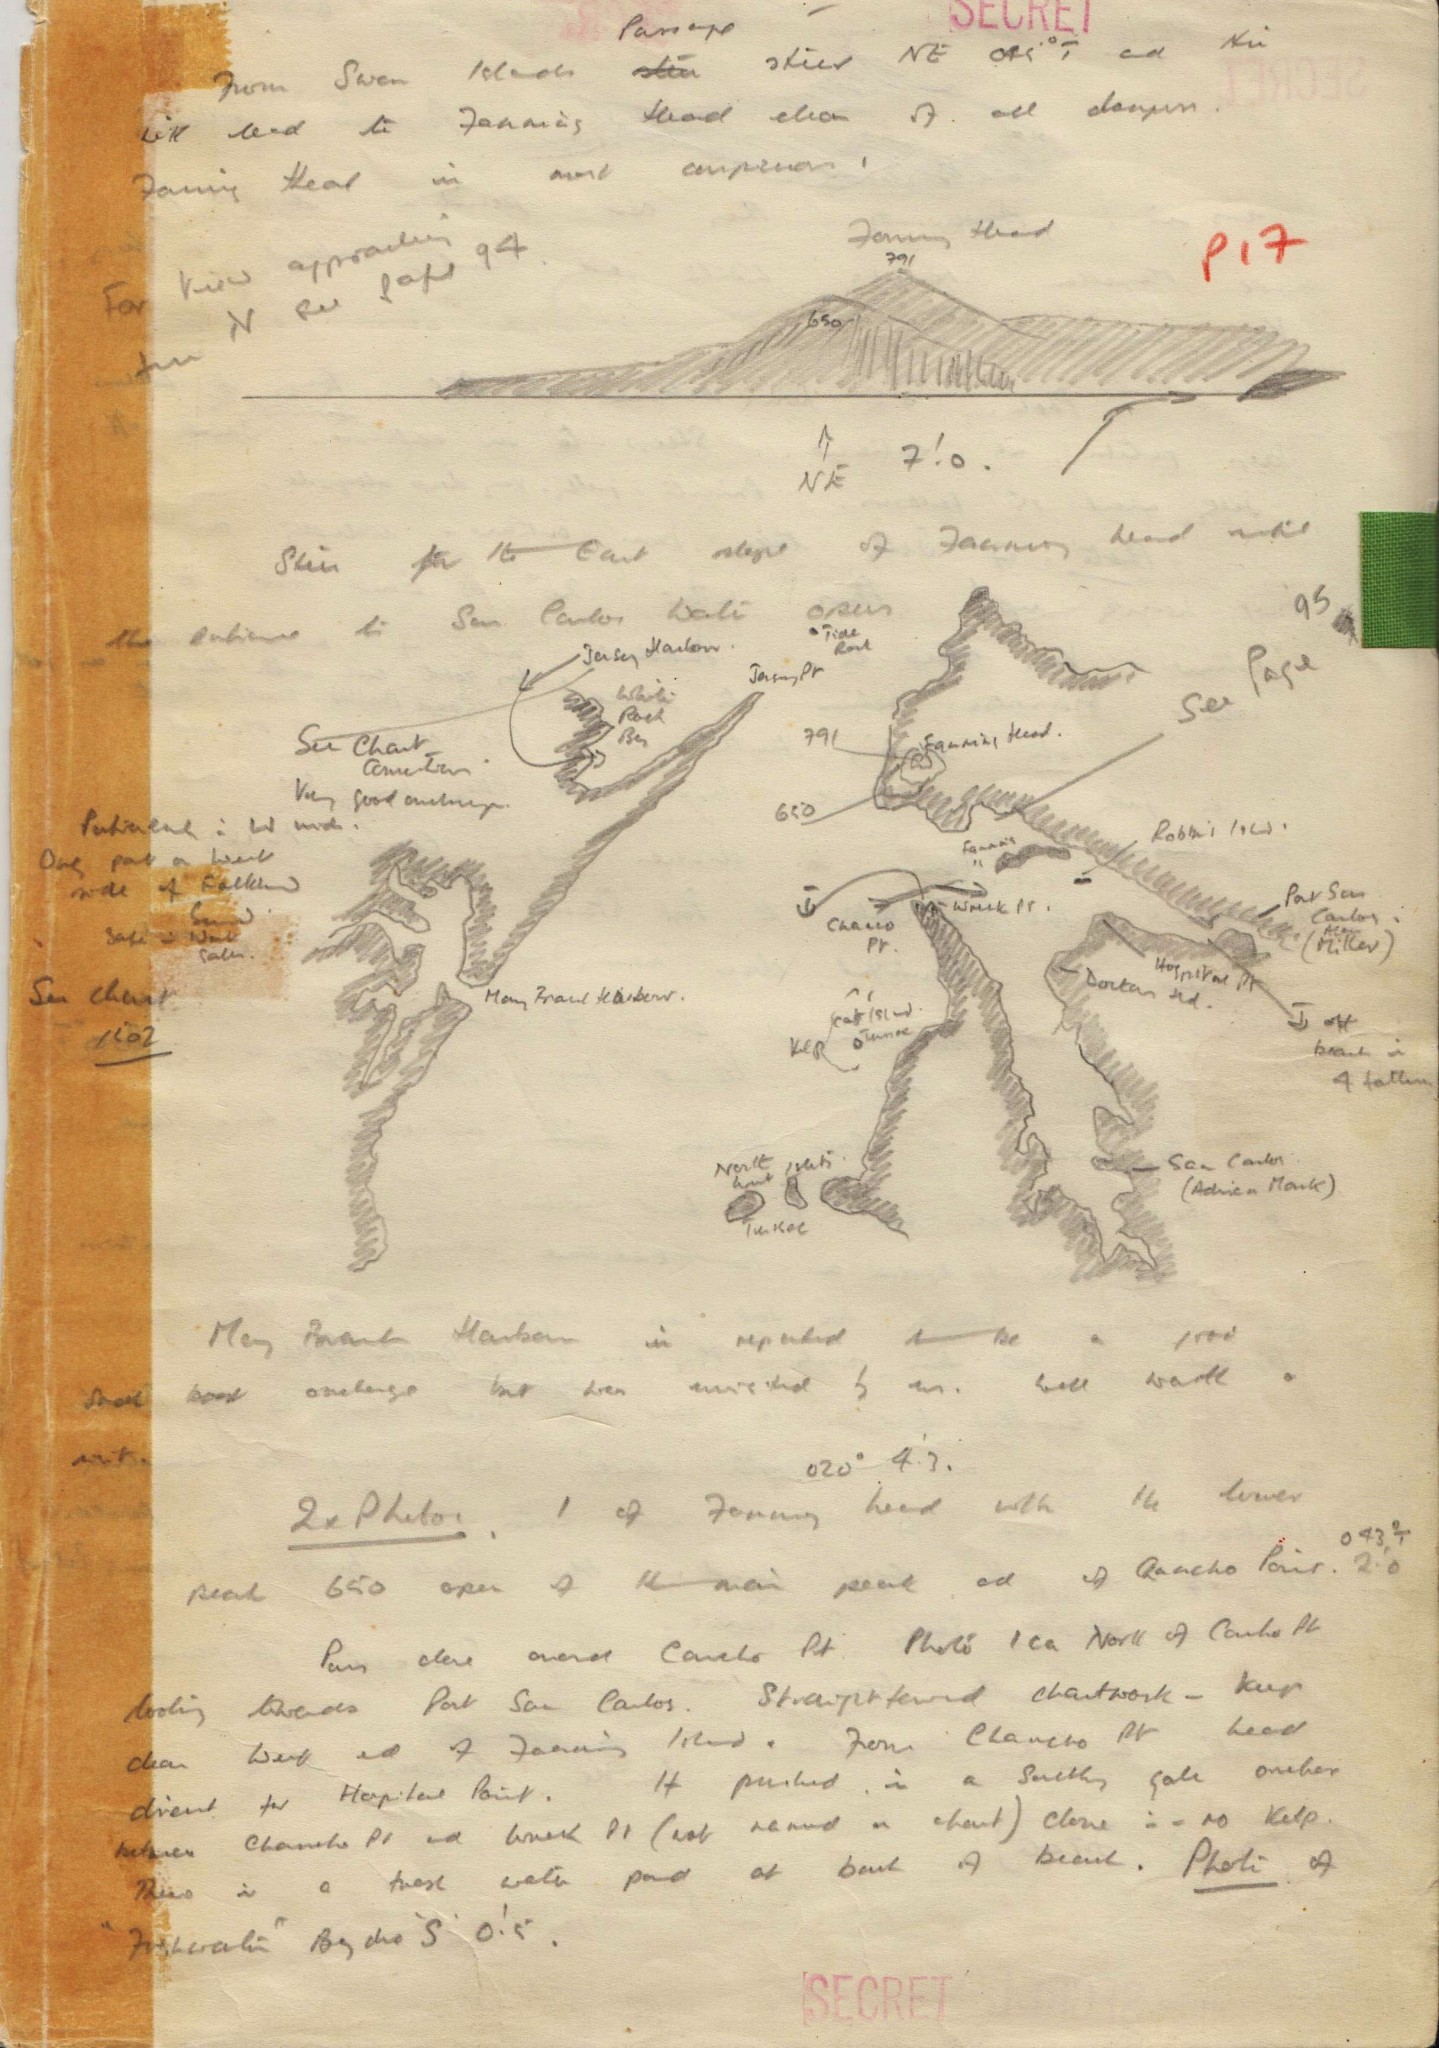 SECRET
SECRET
Passage
From Swan Islands steer NE 045°T and this
will lead to Fanning Head clear of all dangers.
Fanning Head is most conspicuous.
For view approaching
from N see page 94.
P17
Fanning Head
791
650
NE 7!0.
Steer for the East slope of Fanning head until
the entrance to San Carlos Water opens
95
See Page
Tide
Rock
Jersey Harbour.
Jersey Pt
White
Rock
Bay
See Chart
Very good anchorage.
Particularly in W winds.
Only port on West
side of Falkland
Sound.
Safe in West
Gales.
See chart
Many Branch Harbour.
791
Fanning Head.
650
Fanning "
Robbis Islnd.
Wreck Pt.
Chancho
Pt.
Port San
Carlos.
(Alan
Miller)
Hospital Pt
Doctors Hd.
off
beach in
4 fathoms
Cat Islnd.
Kelp
San Carlos.
(Adrien Monk)
North
West
Islets.
Tussac
Many Branch Harbour is reported to be a good
small boat anchorage but was unvisited by us. Well worth a
visit.
020° 4!3.
2x Photos. 1 of Fanning head with the lower
043°T
peak 650 open of the main peak and of Chancho Point. 2!0
Pass close around Chancho Pt. Photo 1 ca North of Chancho Pt
looking towards Port San Carlos. Straightforward chartwork - Keep
clear West end of Fanning Island. From Chancho Pt head
direct for Hospital Point. If pushed in a Southerly gale anchor
between Chancho Pt and Wreck Pt (not named on chart) close in - no Kelp.
There is a fresh water pond at back of beach. Photo of
"Freshwater" Bay 'S' 0!5.
SECRET